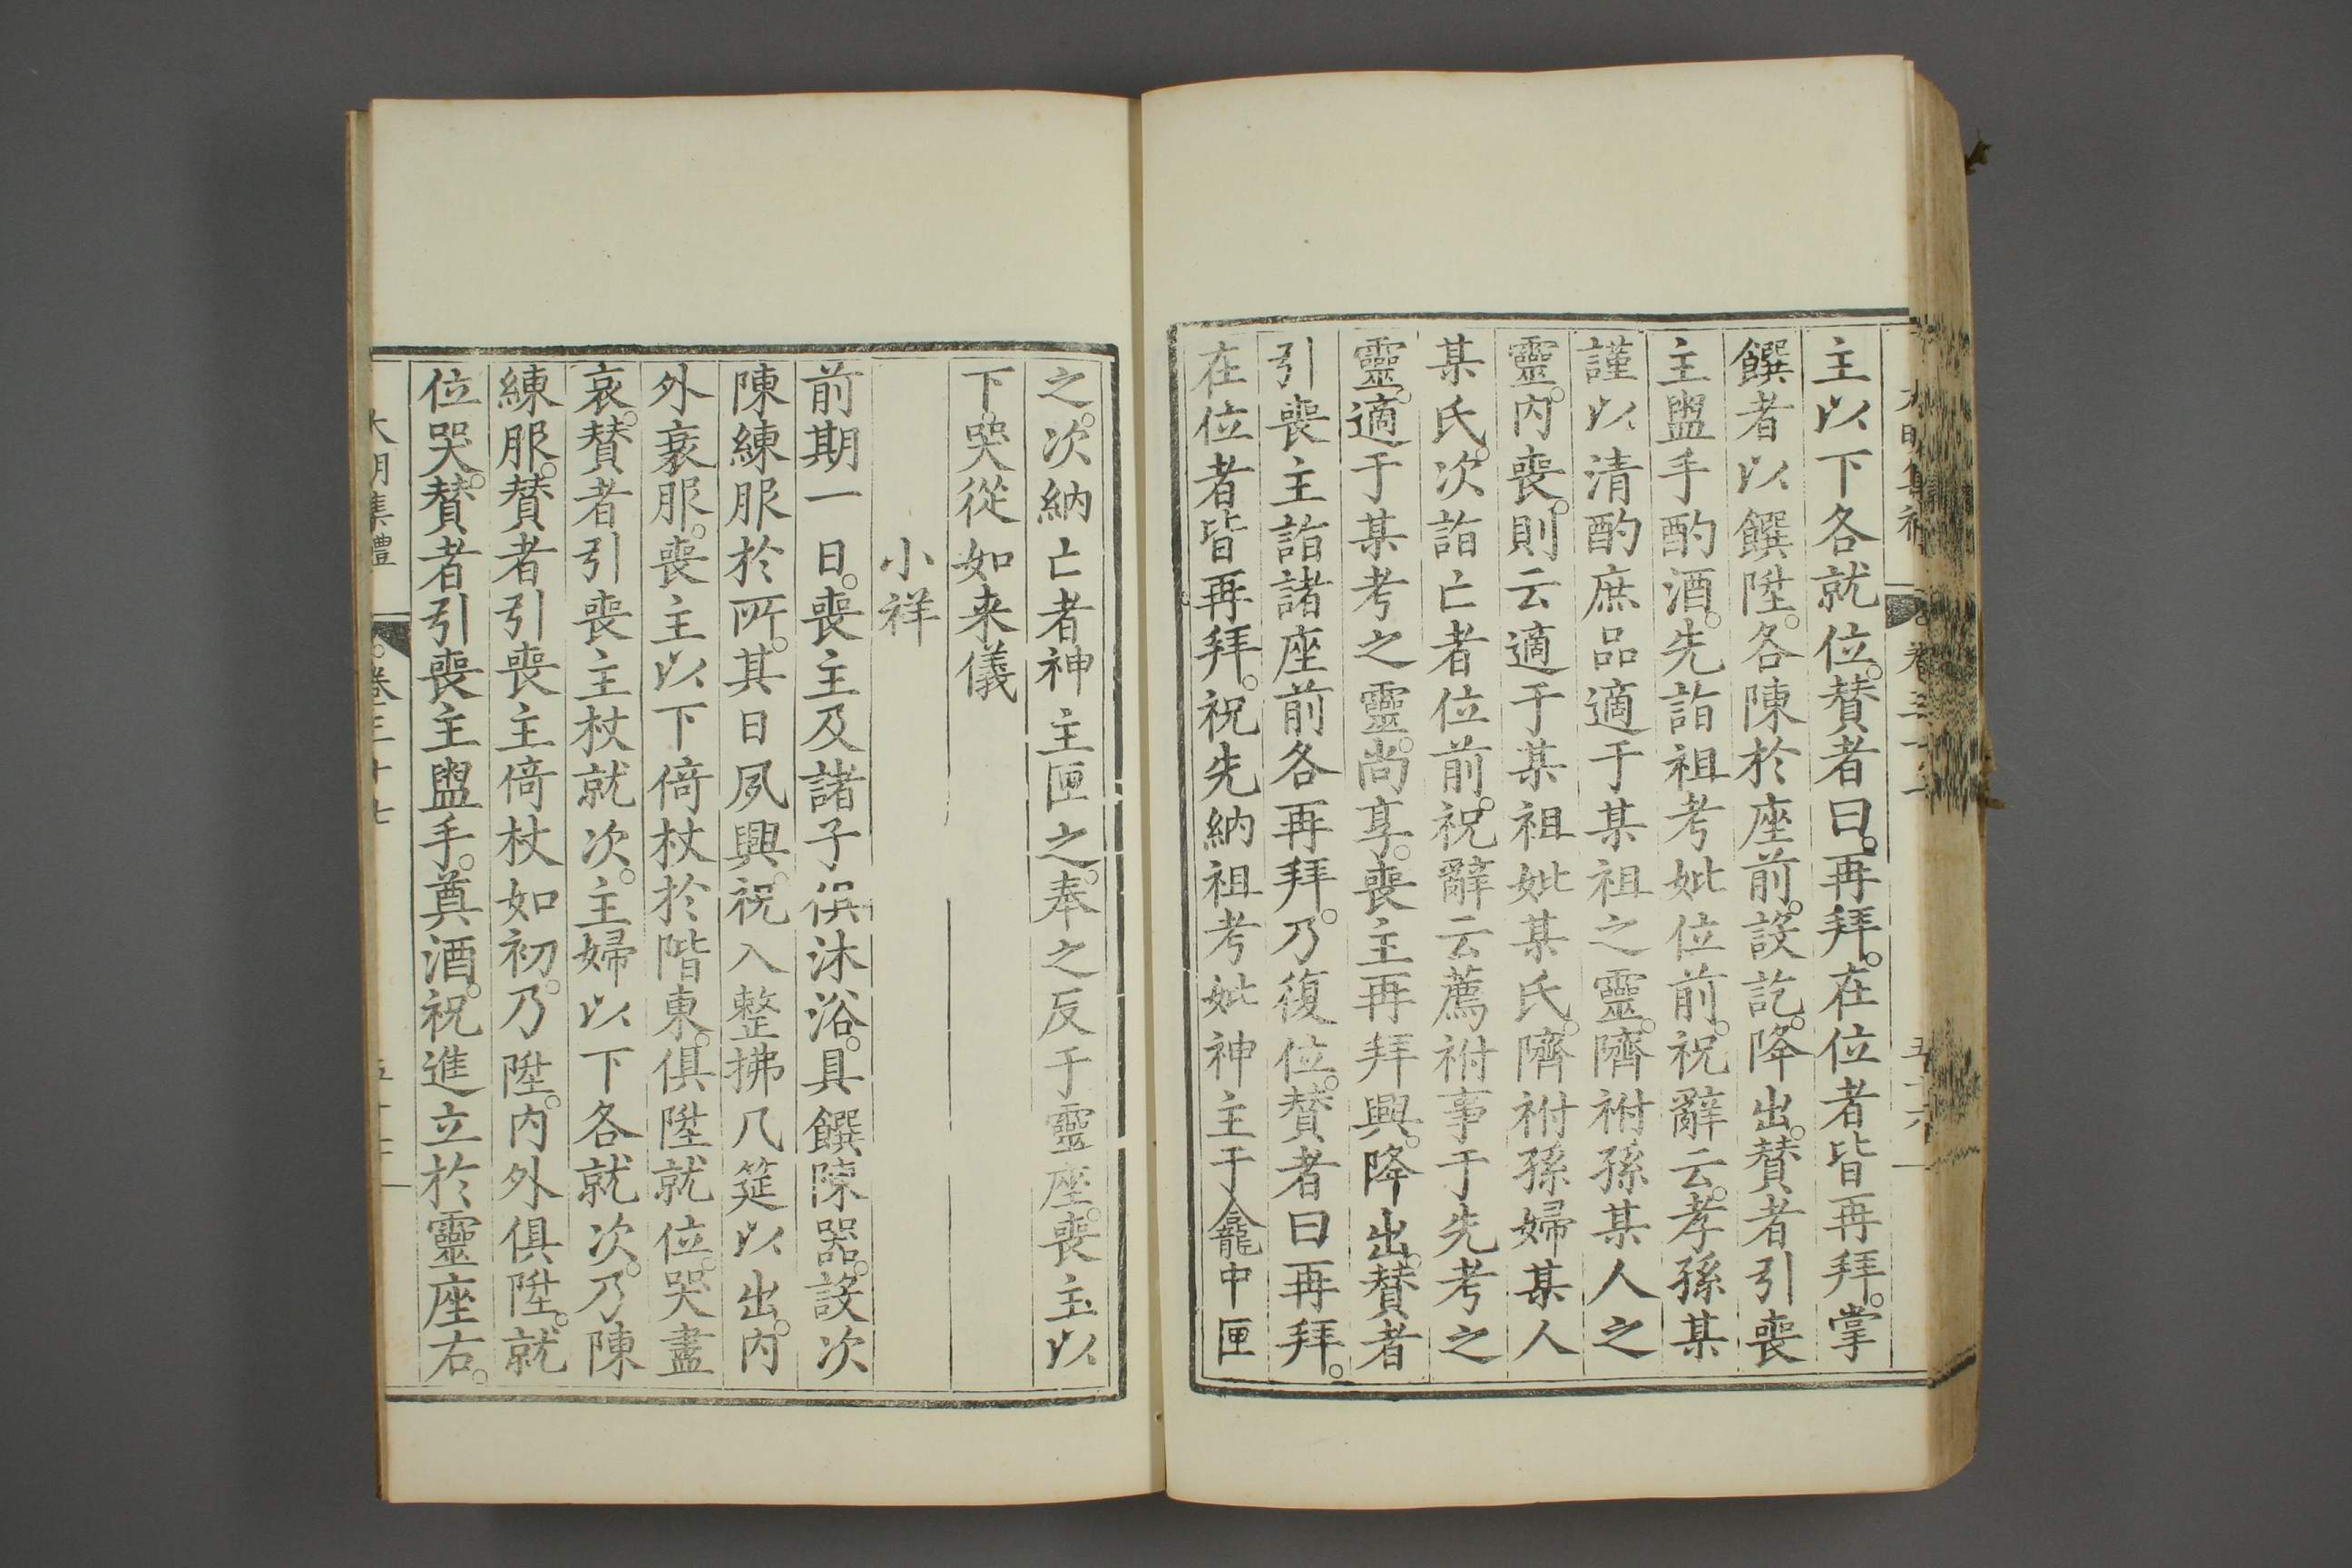 主以下各就位。賛者曰。再拜。在位者皆再拜。掌
饌者以饌陞。各陳於座前。設訖。降出。賛者引喪
主盥手酌酒。先詣祖考妣位前。祝辭云。孝孫某
謹以清酌庶品適于某祖之靈。隮祔孫某人之
靈。内喪。則云適于某祖妣某氏。隮祔孫婦某人
某氏。次詣亡者位前。祝辭云薦祔事于先考之
靈。適于某考之靈。尚享。喪主再拜興。降出。賛者
引喪主詣諸座前各再拜。乃復位。賛者曰再拜。
在位者皆再拜。祝先納祖考妣神主于龕中匣
之。次納亡者神主匣之。奉之反于靈座。喪主以
下。哭從如来儀
小祥
前期一日。喪主及諸子俱沐浴。具饌陳器。設次
陳練服於所。其日夙興。祝入整拂几筵以出。内
外衰服。喪主以下倚杖於階東。俱陞就位。哭盡
哀。賛者引喪主杖就次。主婦以下各就次。乃陳
練服。賛者引喪主倚杖如初。乃陞。内外俱陞。就
位哭。賛者引喪主盥手。奠酒。祝進立於靈座右。
大明集禮 卷三十七